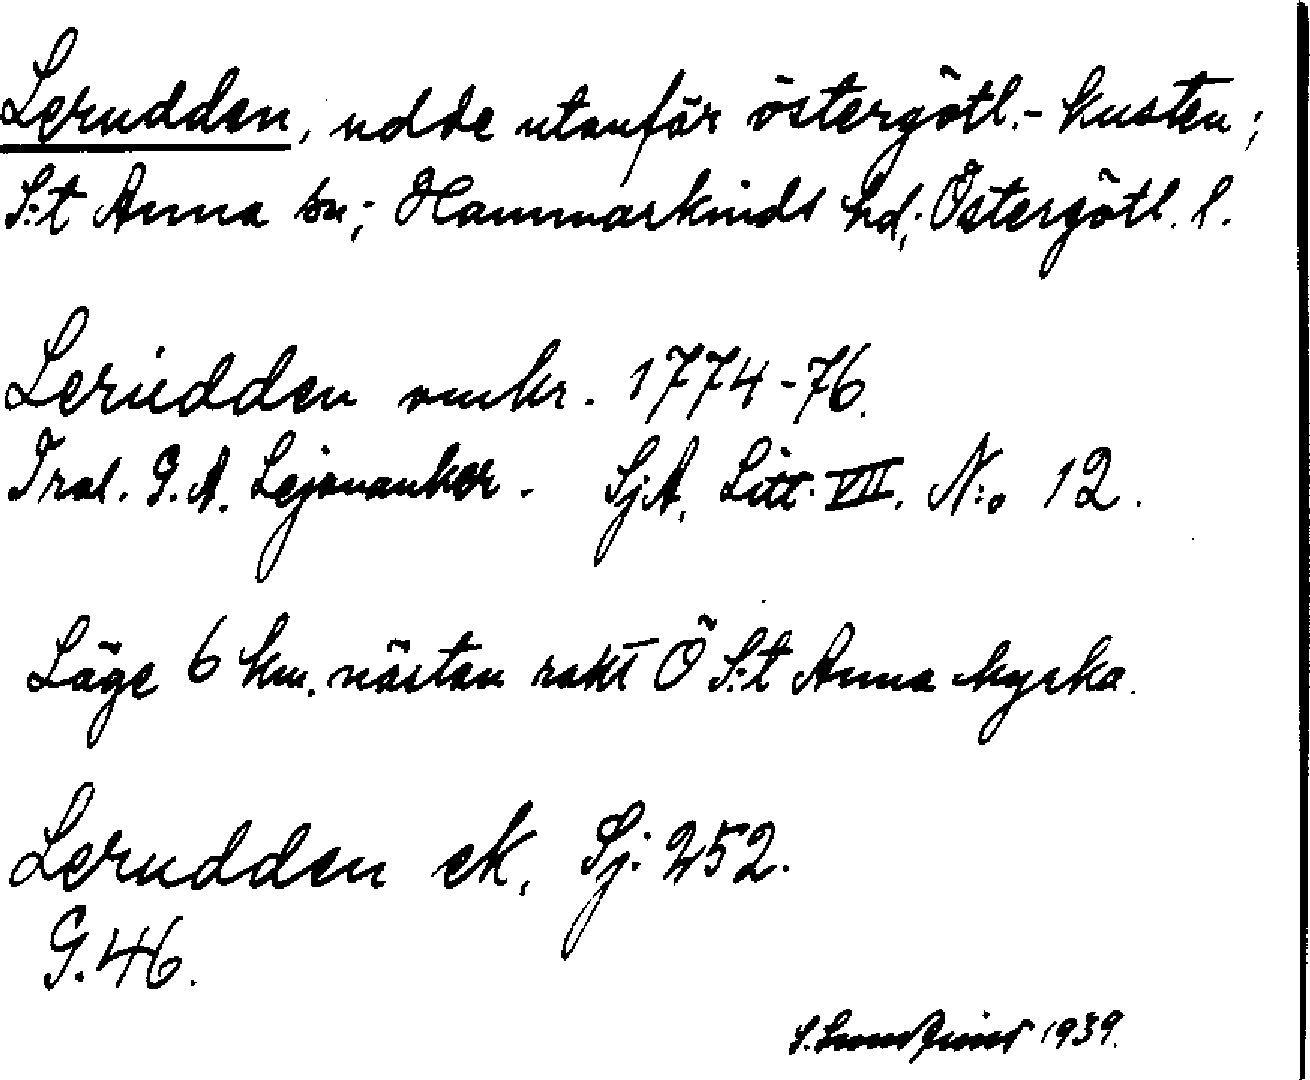 Lerudden, udde utanför östergötl.-kusten;
S:t Anna sn; Hammarkinds hd; Östergötl. l.
Lerudden omkr. 1774-76.
Tral. G. A. Lejonanker. SjA, Litt. VII. N:o 12.
Läge 6 km. nästan rakt Ö S:t Anna kyrka.
Lerudden ek, Sj: 252.
G. 46.
1939.